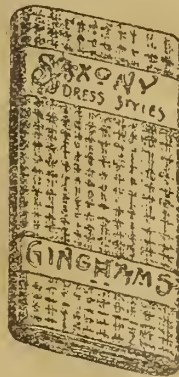 SAXONY
DRESS STYLES
GINGHAMS